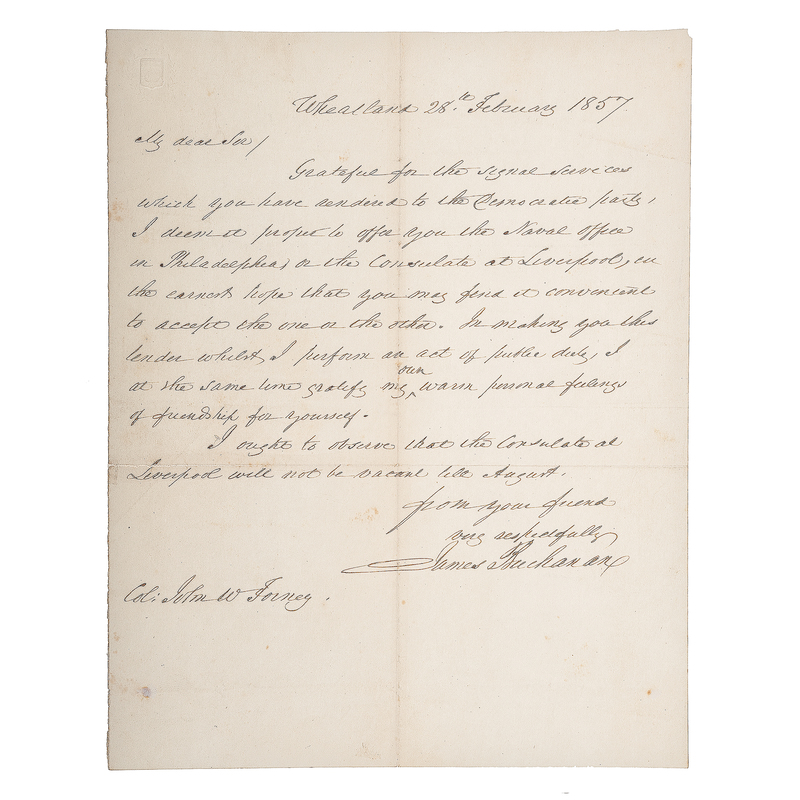 Wheatland 28.th February 1857
My dear Sir/
Grateful for the signal services
which you have rendered to the Democratic party,
I deem it proper to offer you the Naval office
in Philadelphia, or the Consulate at Liverpool, in
the earnest hope that you may find it convenient
to accept the one or the other. In making you this
tender whilst, I perform an act of public duty, I
own
at the same time gratify my ‸ warm personal feelings
of friendship for yourself.
I ought to observe that the Consulate at
Liverpool will not be vacant till August.
from your friend
very respectfully
James Buchanan
Col: John W Forney.